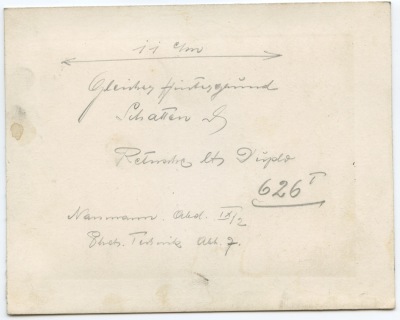 11 c/m
Gleicher Hintergrund
Schatten
Retusche lts Duplo
626 I
Naumann. Abd. IX/2
Phot. Technik Abb. 7.